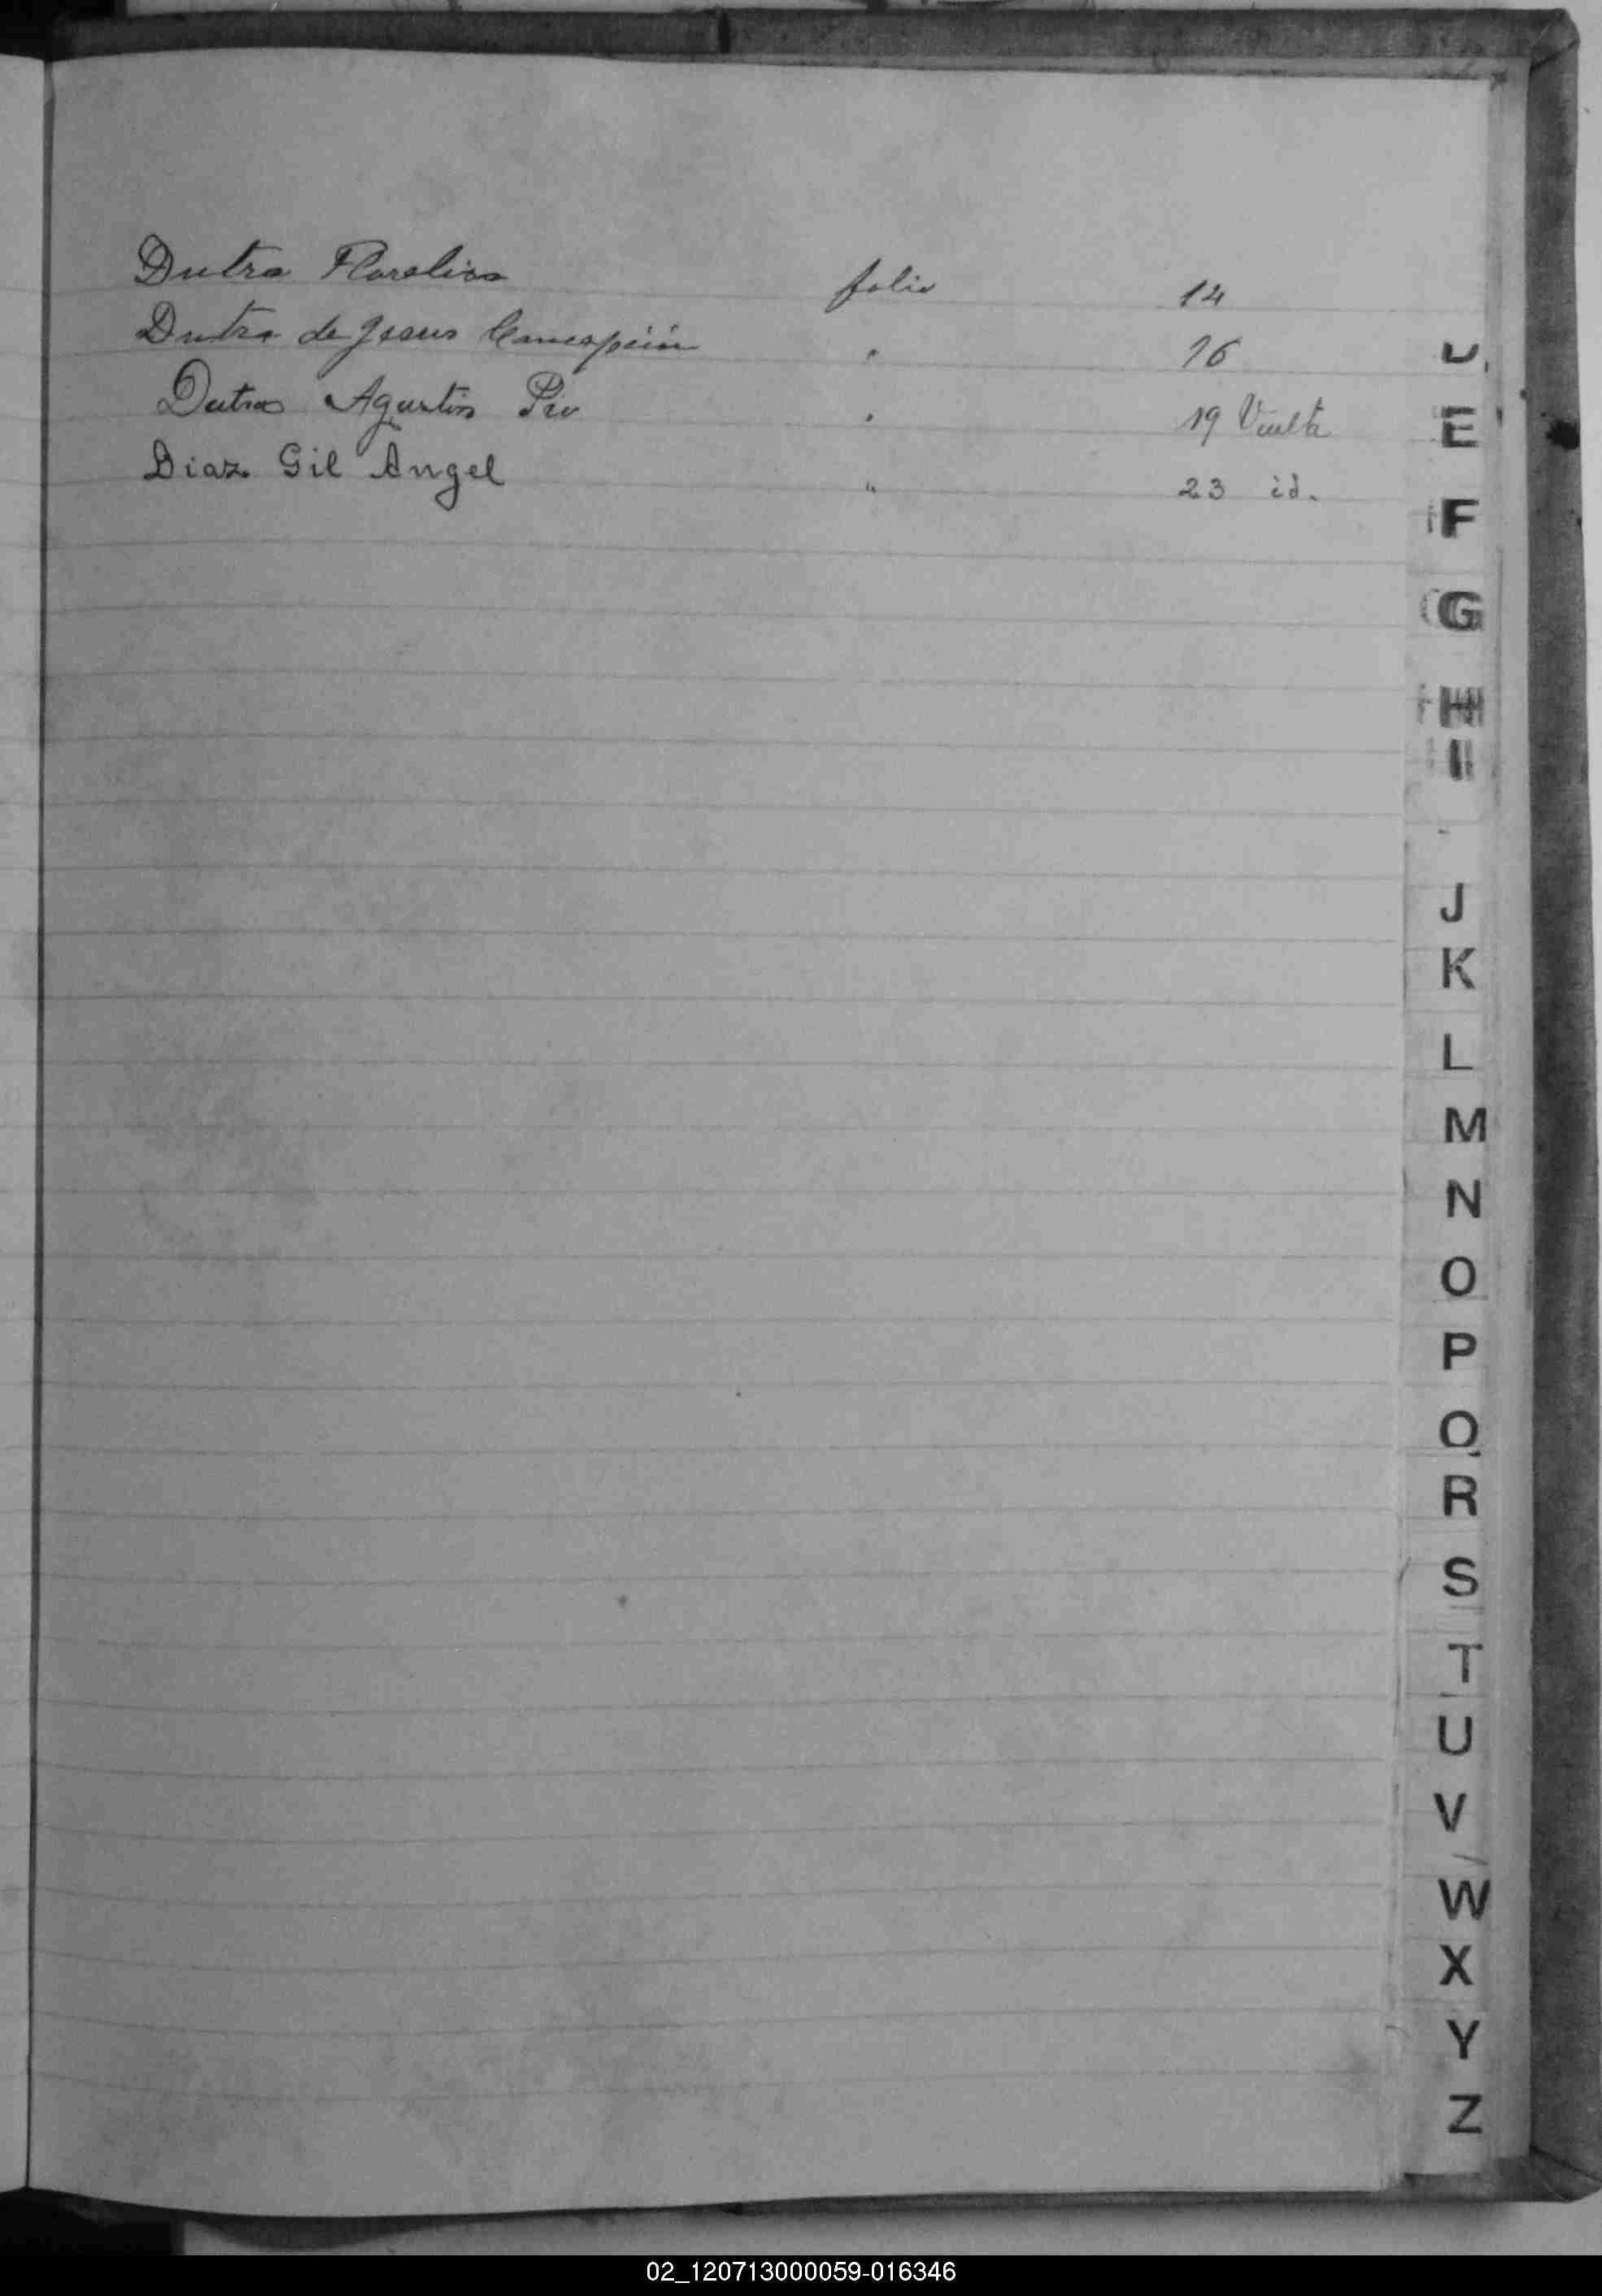 Dutra Floralisa folio 14
Dutra de Jesus Concepción " 16
Dutra Agustin Pio " 19 Vuelta
Diaz Gil Angel " 23 id.
D
E
F
G
H
I
J
K
L
M
N
O
P
Q
R
S
T
U
V
W
X
Y
Z
02_120713000059-016346